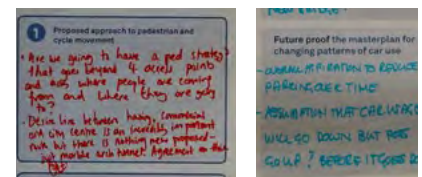 1 Proposed approach to pedestrian and
cycle movement
• Are we going to have a ped strategy
that goes beyond 4 access points
and asks where people are coming
from and where they are going
to?
- Desire line between
and city centre is an incredibly important
but there is nothing new proposed -
just marble arch tunnel. Agreement on this
Future proof the masterplan for
changing patterns of car use
- OVERALL ASPIRATION TO REDUCE
PARKING OVER TIME
- ASSUMPTION THAT CAR USAGE
WILL GO DOWN BUT
GO UP? BEFORE IT GOES